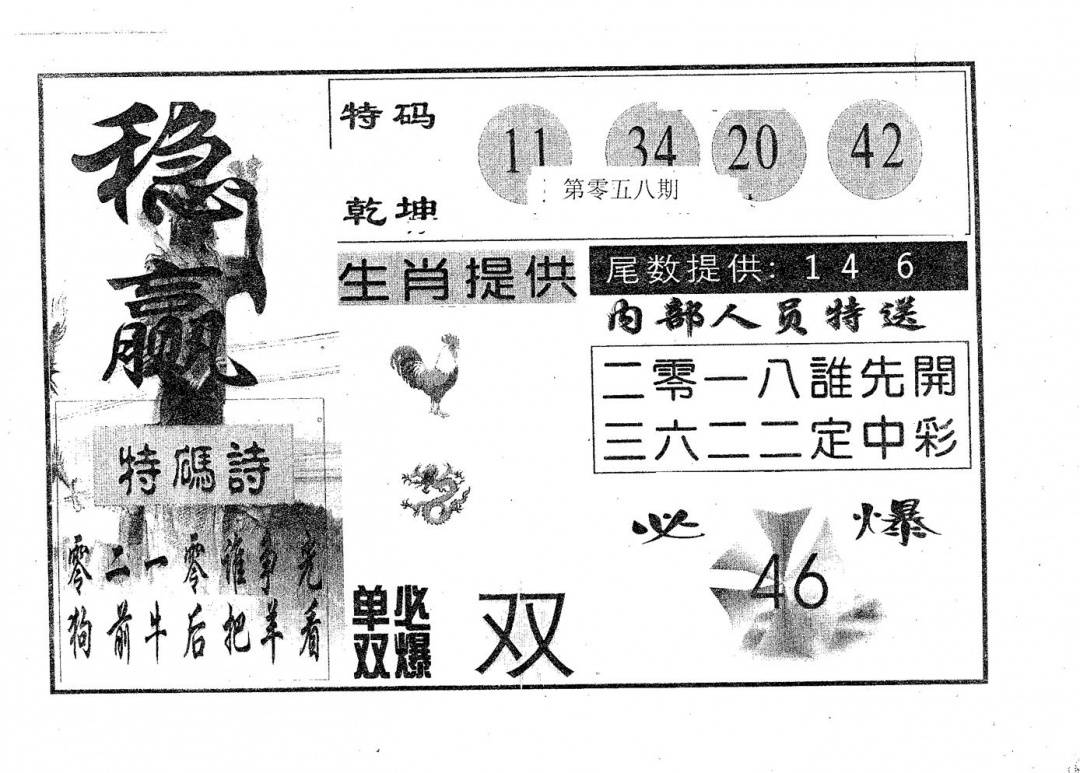 稳赢
特码
乾坤
11 34 20 42
第零五八期
生肖提供
尾数提供: 1 4 6
内部人员特送
二零一八誰先開
三六二二定中彩
特碼詩
零二一零谁争光
狗前牛后把羊看
必爆
46
单双
必爆
双